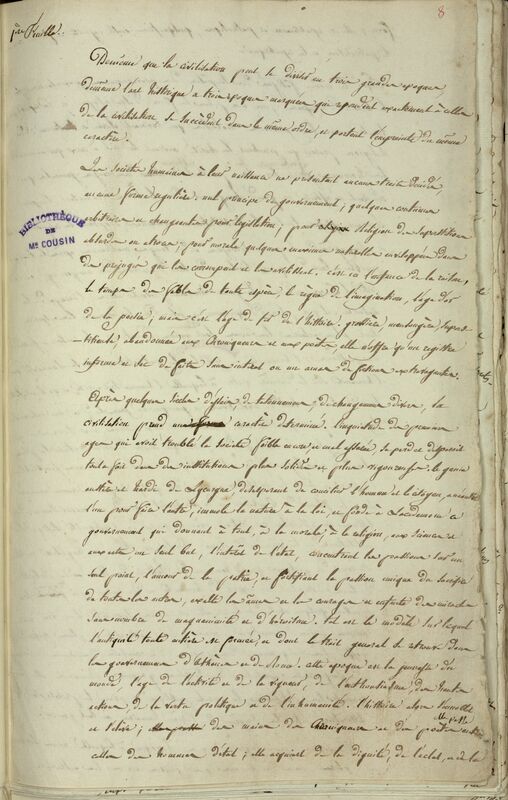 1ère Feuille.
8
De même que la civilisation peut se diviser en trois grandes époques
de même l'art historique a trois époques marquées qui répondent exactement à celles
de la civilisation se succèdent dans le même ordre, et portent l'empreinte du même
caractère.
Les Sociétés humaines à leur naissance ne présentait aucuns traits décidés,
aucune forme régulière. nul principe de gouvernement; quelques coutumes
arbitraires et changeantes pour législation; pour Religion des superstitions
absurdes ou atroces; pour morale quelques maximes naturelles enveloppées dans
des préjugés qui les corrompent et les avilissent. c'est ici l'enfance de la raison,
le temps des fables de toute espèce, le règne de l'imagination, l'âge d'or
de la poésie, mais c'est l'âge de fer de l'histoire. grossière, mensongère, supers
-titieuse, abandonnée aux Chroniqueurs et aux poètes, elle n'offre qu'un registre
informe et sec de faits sans intérêt ou un amas de fictions extravagantes.
BIBLIOTHÈQUE
DE
MR COUSIN
Après quelques siècles d'essais, de tatonnemens, de changemens divers, la
civilisation prend un caractère déterminé. l'inquiétude des premiers
ages qui avoit troublé la société faible encore et mal assurée, se perd et disparoit
tout à fait dans des institutions plus solides et plus vigoureuses. le genie
austère et hardi de Lycurgue désespérant de concilier l'homme et le citoyen,
l'un pour faire l'autre, immole la nature à la loi, et fonde à Lacédémone ce
gouvernement qui donnant à tout, à la morale, à la religion, aux sciences et
aux arts un seul but, l'intérêt de l'état, concentrant les passions sur un
seul point, l'amour de la patrie, et fortifiant la passion unique du sacrifice
de toutes les autres, exalte les âmes et les courages et enfante des miracles
sans nombre de magnanimité et d'héroïsme. tel est le modèle sur lequel
l'antiquité toute entière est formée, et dont le trait general se retrouve dans
les gouvernemens d'Athènes et de Rome. cette époque est la jeunesse du
monde, l'age de l'activité et de la vigueur, de l'enthousiasme, des hautes
actions, de la vertu politique et de l'inhumanité. l'histoire alors s'ennoblit
et s'élève; des mains des Chroniqueurs et des poètes elle passe
celles des hommes d'état; elle acquiert de la dignité, de l'éclat, et de la